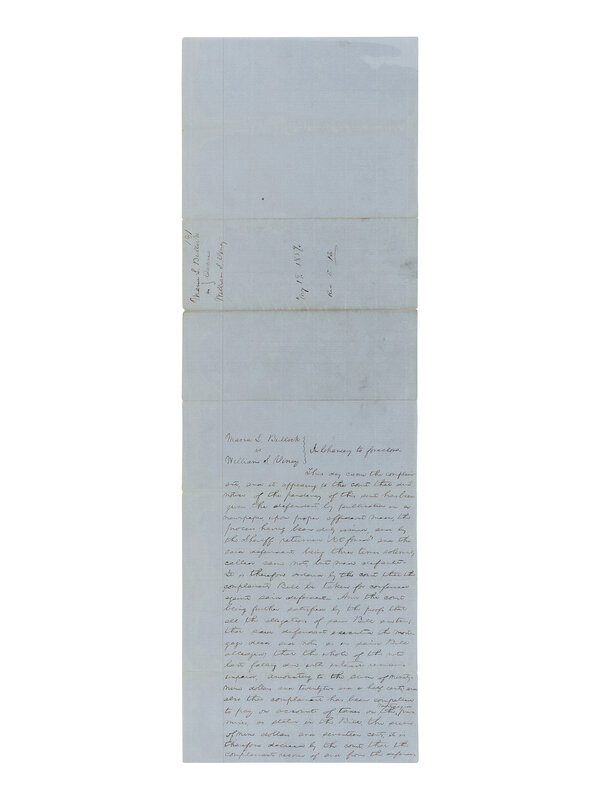 Maria L. Bullock
vs
William S. Viney
In Chancery to foreclose
This day came the complain
ant, and it appearing to the court that due
notice of the pendency of this suit has been
given the defendant by publication in a
newspaper upon proper affidavit made, the
process having been duly issued, and by
the Sheriff returned "Not found" and the
said defendant being three times solemnly
called came not but made default
It is therefore ordered by the court that the
complainants Bill be taken for confessed
against said defendant. And the court
being further satisfied by the proofs that
all the allegations of said Bill are true
that said defendant executed the mort-
gage deed and note as in said Bill
alleged, that the whole of the note
last falling due with interest remains
unpaid, amounting to the sum of ninety
nine dollars and twenty two and a half cents, and
also that complainant has been compelled
to pay on account of taxes on the mortgaged prem
ises, as stated in the Bill the sum
of nine dollars and seventeen cents, it is
therefore decreed by the court that the
complainant recover of and from the defendant
191
Maria L. Bullock
vs
William S. Viney
1857